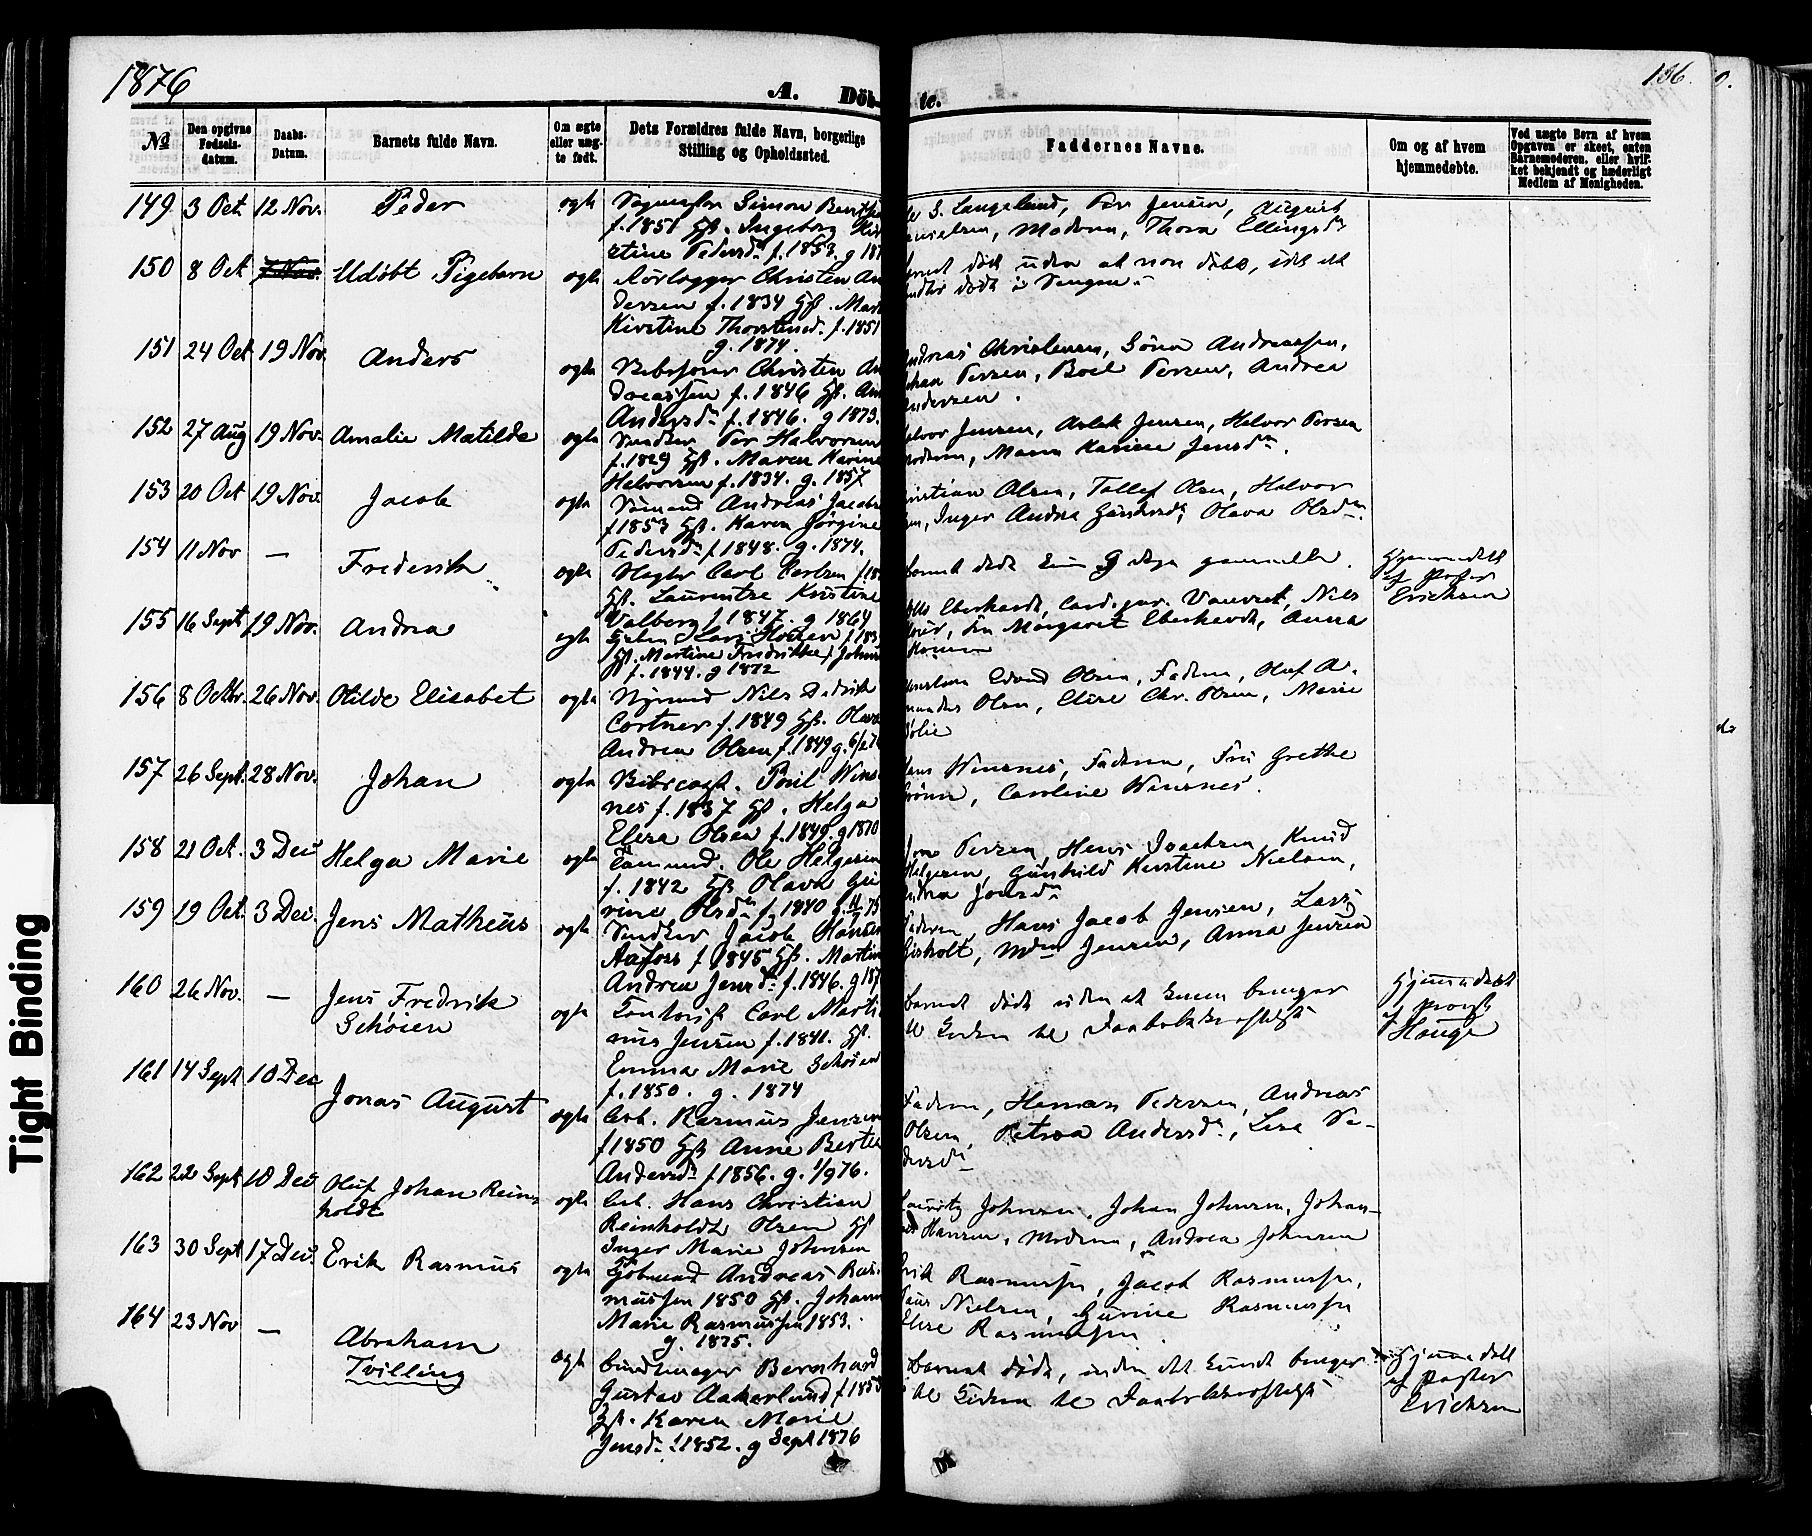 1876
A. Döb
te.
186.
0.
№
Den opgivne Fødsels-datum.
Daabs-Datum.
Barnets fulde Navn.
Om ægte eller uæg-te født.
Dets Forældres fulde Navn, borgerlige Stilling og Opholdssted.
Faddernes Navne.
Om og af hvem hjemmedøbte.
Ved uægte Børn af hvem Opgaven er skeet, enten Barnemoderen, eller hvil-ket bekjendt og hæderligt Medlem af Menigheden.
149 3 Oct 12 Nov. Peder ægte Simon
f. 1851 Hst. Ingeborg
stine Pedersd. f. 1853. g 187
S. Langelund, Per Jensen, August
Moderen, Thora Ellingsdn
150 8 Oct 7 Nov. Udøbt Pigebarn ægte Rørlægger Christen An
dersen f. 1834 Hst. Mar
Kirstine Thorstensd. f. 1851
g. 1874.
død uden at være døbt, idet det
døde i Sengen.
151 24 Oct 19 Nov Anders ægte Christen An
dreassen f. 1846 Hst. An
Andersd. f. 1846. g 1873.
ndreas Christensen, Sören Andreassen,
ohan Persen, Boel Persen, Andrea
ndersen.
152 27 Aug 19 Nov. Amalie Matilde ægte Snedker Per Halvorsen
f. 1829 Hst. Maren Karine
Halvorsen f. 1834. g. 1857
alvor Jensen, Aslak Jensen, Halvor Persen
oderen, Maren Karine Jensdn.
153 20 Oct 19 Nov. Jacob ægte Sömand Andreas Jacobs
f 1853 Hst. Karen Jörgine
Pedersd. f. 1848. g. 1874.
ristian Olsen, Tollef Olsen, Halvor
en, Inger Andrea Olava Olsdn.
154 11 Nov — Frederik ægte Carl Carlsen f. 18
Hst. Laurentze Kristine
Valberg f. 1847. g 1869
Barnet døde kun 9 Dage gammelt.
Hjemmedøbt
af Pastor
Erichsen
155 16 Sept 19 Nov. Andrea ægte Lars f. 183
Hst. Martine Fredrikke Johns
f. 1844. g 1872
Eberhardt, Vauvert, Nils
Fru Margaret Eberhardt, Anna
156 8 Octbr. 26 Nov. Otilde Elisabet ægte Nils Didrik
Cortner f. 1849 Hst. Olava
Andrea Olsen f. 1849 g. 6/2 76
Edvard Olsen, Faderen, Oluf A.
Olsen, Elise Chr. Olsen, Marie
olie
157 26 Sept. 28 Nov. Johan ægte Poul Wins
nes f. 1837 Hst. Helga
Elisa Olsen f. 1849. g 1870
Winsnes, Faderen, Fru Grethe
Caroline Winsnes.
158 21 Oct. 3 Dec Helga Marie ægte Tömmd. Ole Helgesen
f. 1842 Hst Olava
rine Olsdn f. 1840
Persen, Hans Isachsen, Knud
Helgesen, Gunhild Kirstine Nielsen,
ndrea Jonsdn
159 19 Oct. 3 Dec. Jens Matheus ægte Snedker Jacob Hansen
Aafoss f. 1845 Hst. Martin
Andrea Jensd. f. 1846. g 187
Faderen, Hans Jacob Jensen, Lars
Gisholt, Mdn Jensen, Anna Jensen
160 26 Nov. — Jens Fredrik
Schøien ægte Carl Marti
nus Jensen f. 1841. Hst.
Emma Marie Schøien
f. 1850. g. 1874
Barnet døde uden at kunne bringes
til Kirken til Daabsbekræftelse
Hjemmedøbt
af Provst
Hauge
161 14 Sept 10 Dec Jonas August ægte Arb. Rasmus Jensen
f 1850 Hst Anne Berte
Andersdn f. 1856. g. 1/9 76.
Faderen, Herman Pedersen, Andreas
Olsen, Petrea Andersdn., Lise Pe-
dersdn
162 22 Sept 10 Dec Oluf Johan Rein-
holdt ægte Arb. Hans Christian
Reinholdt Olsen Hst
Inger Marie Johnsen
Lauritz Johnsen, Johan Johnsen, Johan-
nes Hansen, Moderen, Andrea Johnsen
163 30 Sept 17 Dec. Erik Rasmus ægte Andreas Ras-
mussen 1850 Hst. Johann
Marie Rasmussen 1853.
g. 1875.
Erik Rasmussen, Jacob Rasmussen,
Nielsen, Gurine Rasmussen
Elise Rasmussen.
164 23 Nov — Abraham
Tvilling ægte Bernhard
Gustav Aakerlund f 185
Hst. Karen Marie
Jensd. f. 1852. g Sept 1876
Barnet døde, uden at kunde bringes
til Kirken til Daabsbekræftelse
Hjemmedøbt
af Pastor
Erichsen
Tight Binding